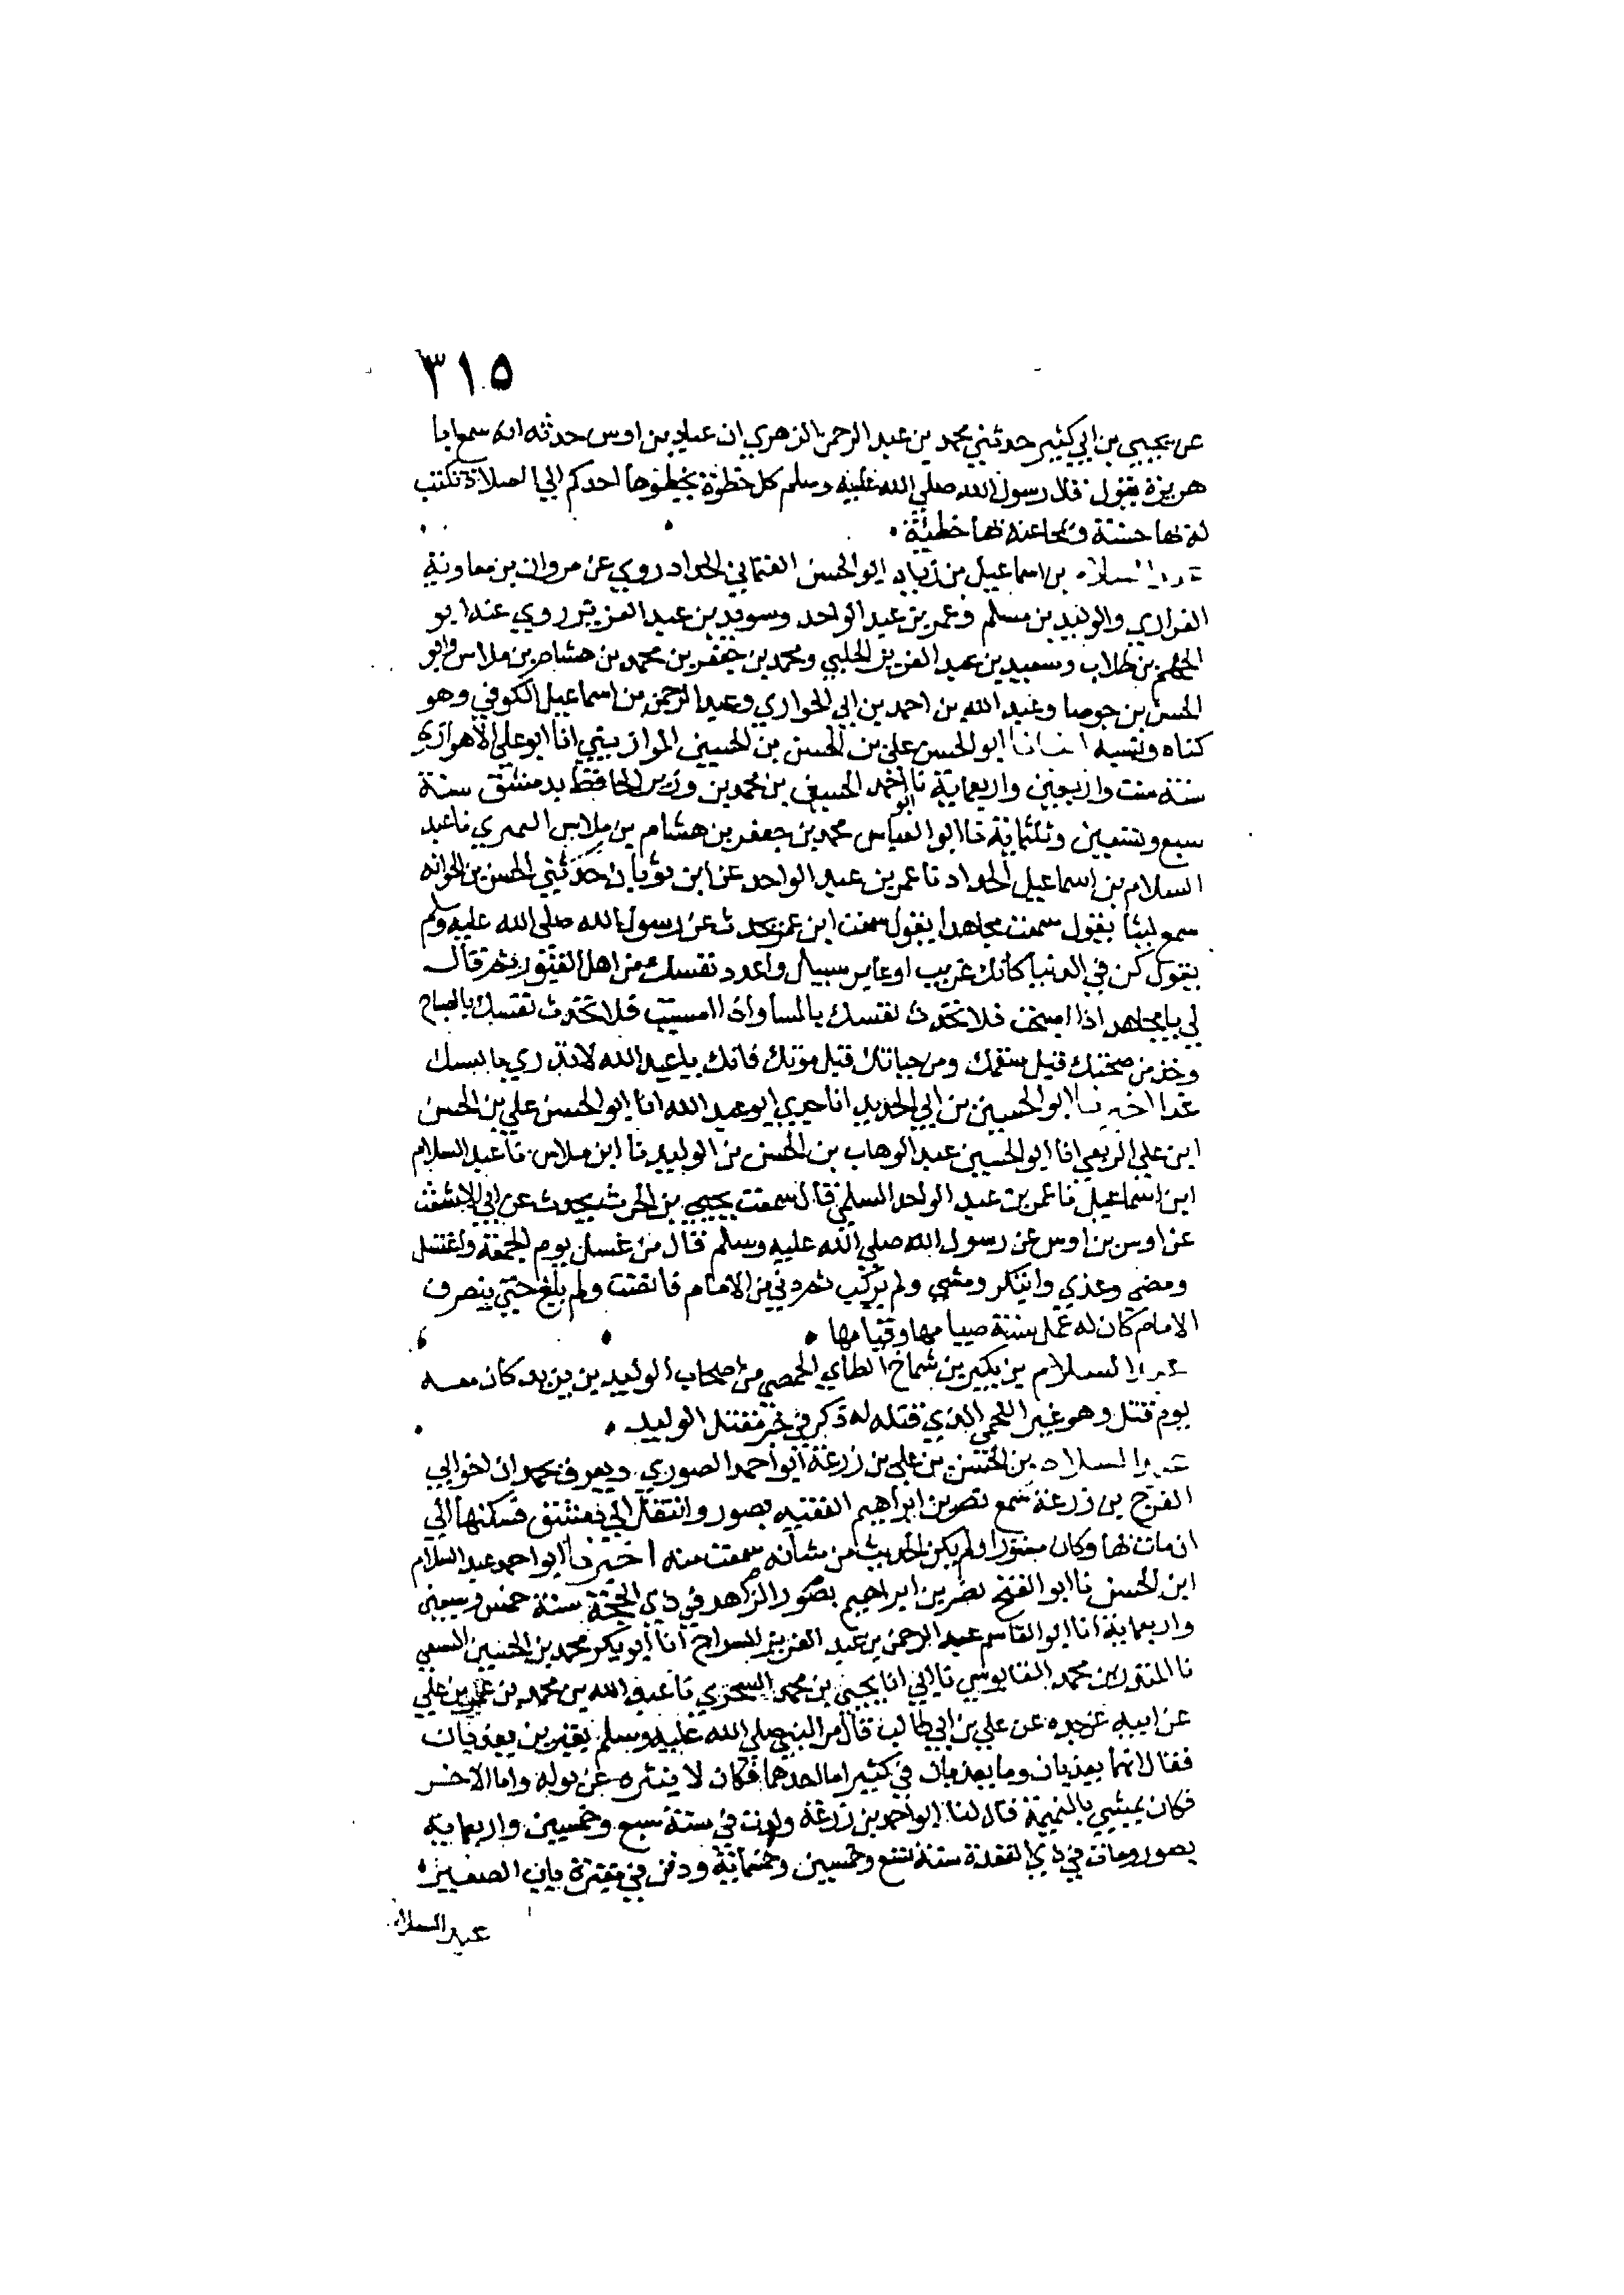 ٣١٥
عن يحيى بن ابي كثير حدثني محمد بن عبد الرحمن الزهري ان عباد بن اوس حدثه انه سمع ابا
هريرة يقول قال رسول الله صلي الله عليه وسلم كل خطوة يخطوها احدكم الي الصلاة تكتب
له بها حسنة ومحا عنه بها خطيئة
عبد السلام بن اسماعيل بن زياد ابو الحسن العثماني الحداد روي عن مروان بن معاوية
الفزاري والوليد بن مسلم وعمر بن عبد الواحد وسويد بن عبد العزيز روي عنه ابو
الجهم بن طلاب وسعيد بن عبد العزيز الحلبي ومحمد بن جعفر بن محمد بن هشام بن ملاس وابو
الحسن بن جوصا وعبد الله بن احمد بن ابي الحواري وعبد الرحمن بن اسماعيل الكوفي وهو
كناه ونسبه انبانا ابو الحسن علي بن الحسن بن الحسين الموازيني انا ابو علي الاهوازي
سنة ست واربعين واربعماية نا ابو احمد الحسين بن محمد بن الحافظ بدمشق سنة
سبع وتسعين وثلثماية نا ابو العباس محمد بن جعفر بن هشام بن ملاس النميري نا عبد
السلام بن اسماعيل الحداد نا عمر بن عبد الواحد عن ابن ثوبان حدثني الحسن بن الحر انه
سمع ليثا يقول سمعت مجاهدا يقول سمعت ابن عمر يحدث عن رسول الله صلى الله عليه وسلم
يقول كن في الدنيا كانك غريب او عابر سبيل واعدد نفسك من اهل القبور ثم قال
لي يا مجاهد اذا اصبحت فلا تحدث نفسك بالمسا واذا امسيت فلا تحدث نفسك بالصباح
وخذ من صحتك قبل سقمك ومن حياتك قبل موتك فانك يا عبد الله لا تدري ما اسمك
غدا اخبرنا ابو الحسين بن ابي الحديد انا جدي ابو عبد الله انا ابو الحسن علي بن الحسن
ابن علي الربعي انا ابو الحسين عبد الوهاب بن الحسن بن الوليد نا ابن ملاس نا عبد السلام
ابن اسماعيل نا عمر بن عبد الواحد السلمي قال سمعت يحيي بن الحرث يحدث عن ابي الاشعث
عن اوس بن اوس عن رسول الله صلي الله عليه وسلم قال من غسل يوم الجمعة واغتسل
ومضى وغدي وابتكر ومشي ولم يركب ثم دني من الامام فانصت ولم يلغ حتي ينصرف
الامام كان له عمل سنة صيامها وقيامها
عبد السلام بن بكير بن شماخ الطاي الحمصي من اصحاب الوليد بن يزيد كان معه
يوم قتل وهو غير اللخمي الذي قتله له ذكر في خبر مقتل الوليد
عبد السلام بن الحسن بن علي بن زرعة ابو احمد الصوري ويعرف بحمدان اخو ابي
الفرج بن زرعة سمع نصر بن ابراهيم الفقيه بصور وانتقل الي دمشق فسكنها الي
ان مات بها وكان مستورا ولم يكن الحديث من شانه سمعت منه اخبرنا ابو احمد عبد السلام
ابن الحسن نا ابو الفتح نصر بن ابراهيم بصور الزاهد في ذي الحجة سنة خمس وسبعين
واربعماية انا ابو القاسم عبد الرحمن بن عبد العزيز السراج انا ابو بكر محمد بن الحسين السبيعي
نا المنذر بن محمد القابوسي نا ابي انا يحيى بن محمد الشجري نا عبد الله بن محمد بن عمر بن علي
عن ابيه عن جده عن علي بن ابي طالب قال مر النبي صلي الله عليه وسلم بقبرين يعذبان
فقال انهما يعذبان وما يعذبان في كثير اما احدهما فكان لا يتنزه عن بوله واما الاخر
فكان يمشي بالنميمة قال لنا ابو احمد بن زرعة ولدت في سنة سبع وخمسين واربعماية
بصور ومات في ذي القعدة سنة تسع وخمسين وخمسماية ودفن في مقبرة باب الصغير
عبد السلام